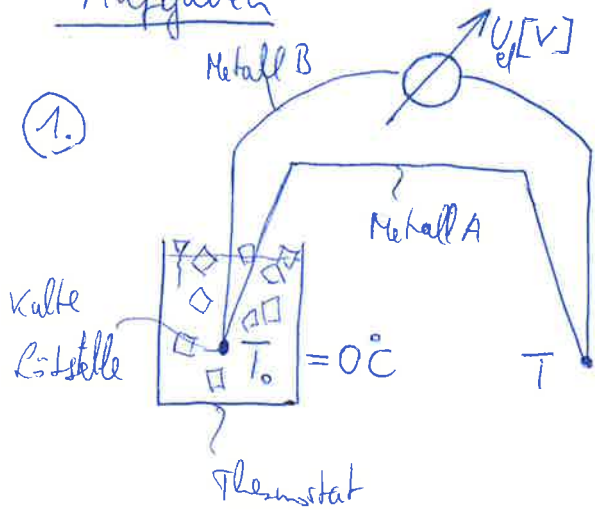 Aufgaben
Metall B
U_el [V]
1.
Metall A
Kalte
Lötstelle
T₀ = 0°C
T
Thermostat